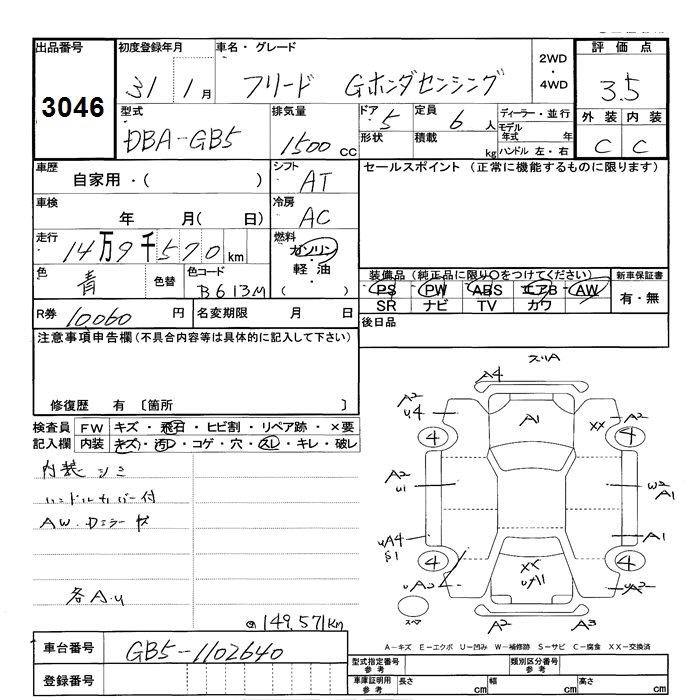 出品番号
3046
初度登録年月
31 1月
車名・グレード
フリード Gホンダセンシング
2WD
・
4WD
評価点
3.5
外装 内装
C C
型式
DBA-GB5
排気量
1500 CC
ドア 5
形状
定員 6人
積載 kg
ディーラー・並行
モデル年式 年
ハンドル 左・右
車歴
自家用・( )
シフト
AT
セールスポイント (正常に機能するものに限ります)
車検
年 月( 日)
冷房
AC
走行
14万9千570km
燃料
ガソリン
・
軽油
( )
色
青
色替
色コード
B613M
装備品(純正品に限り○をつけてください)
PS PW ABS エアB AW
SR ナビ TV カワ
新車保証書
有・無
R券 10060円
名変期限 月 日
後日品
注意事項申告欄(不具合内容等は具体的に記入して下さい)
修復歴 有 〔箇所 〕
検査員記入欄
FW キズ・飛石・ヒビ割・リペア跡・×要
内装 キズ・汚レ・コゲ・穴・スレ・キレ・破レ
内装 シミ
ハンドルカバー付
各A.U
149,571km
スリA
A4
A2
U4
A1
XX
A2
4
4
A2
U1
W2
A1
UA4
S1
A1
4
4
XX
UA1
UA2
スペア
A2
A3
A-キズ E-エクボ U-凹み W-補修跡 S-サビ C-腐食 XX-交換済
車台番号
GB5-1102640
登録番号
型式指定番号
参考
類別区分番号
参考
車庫証明用
参考
長さ cm
幅 cm
高さ cm